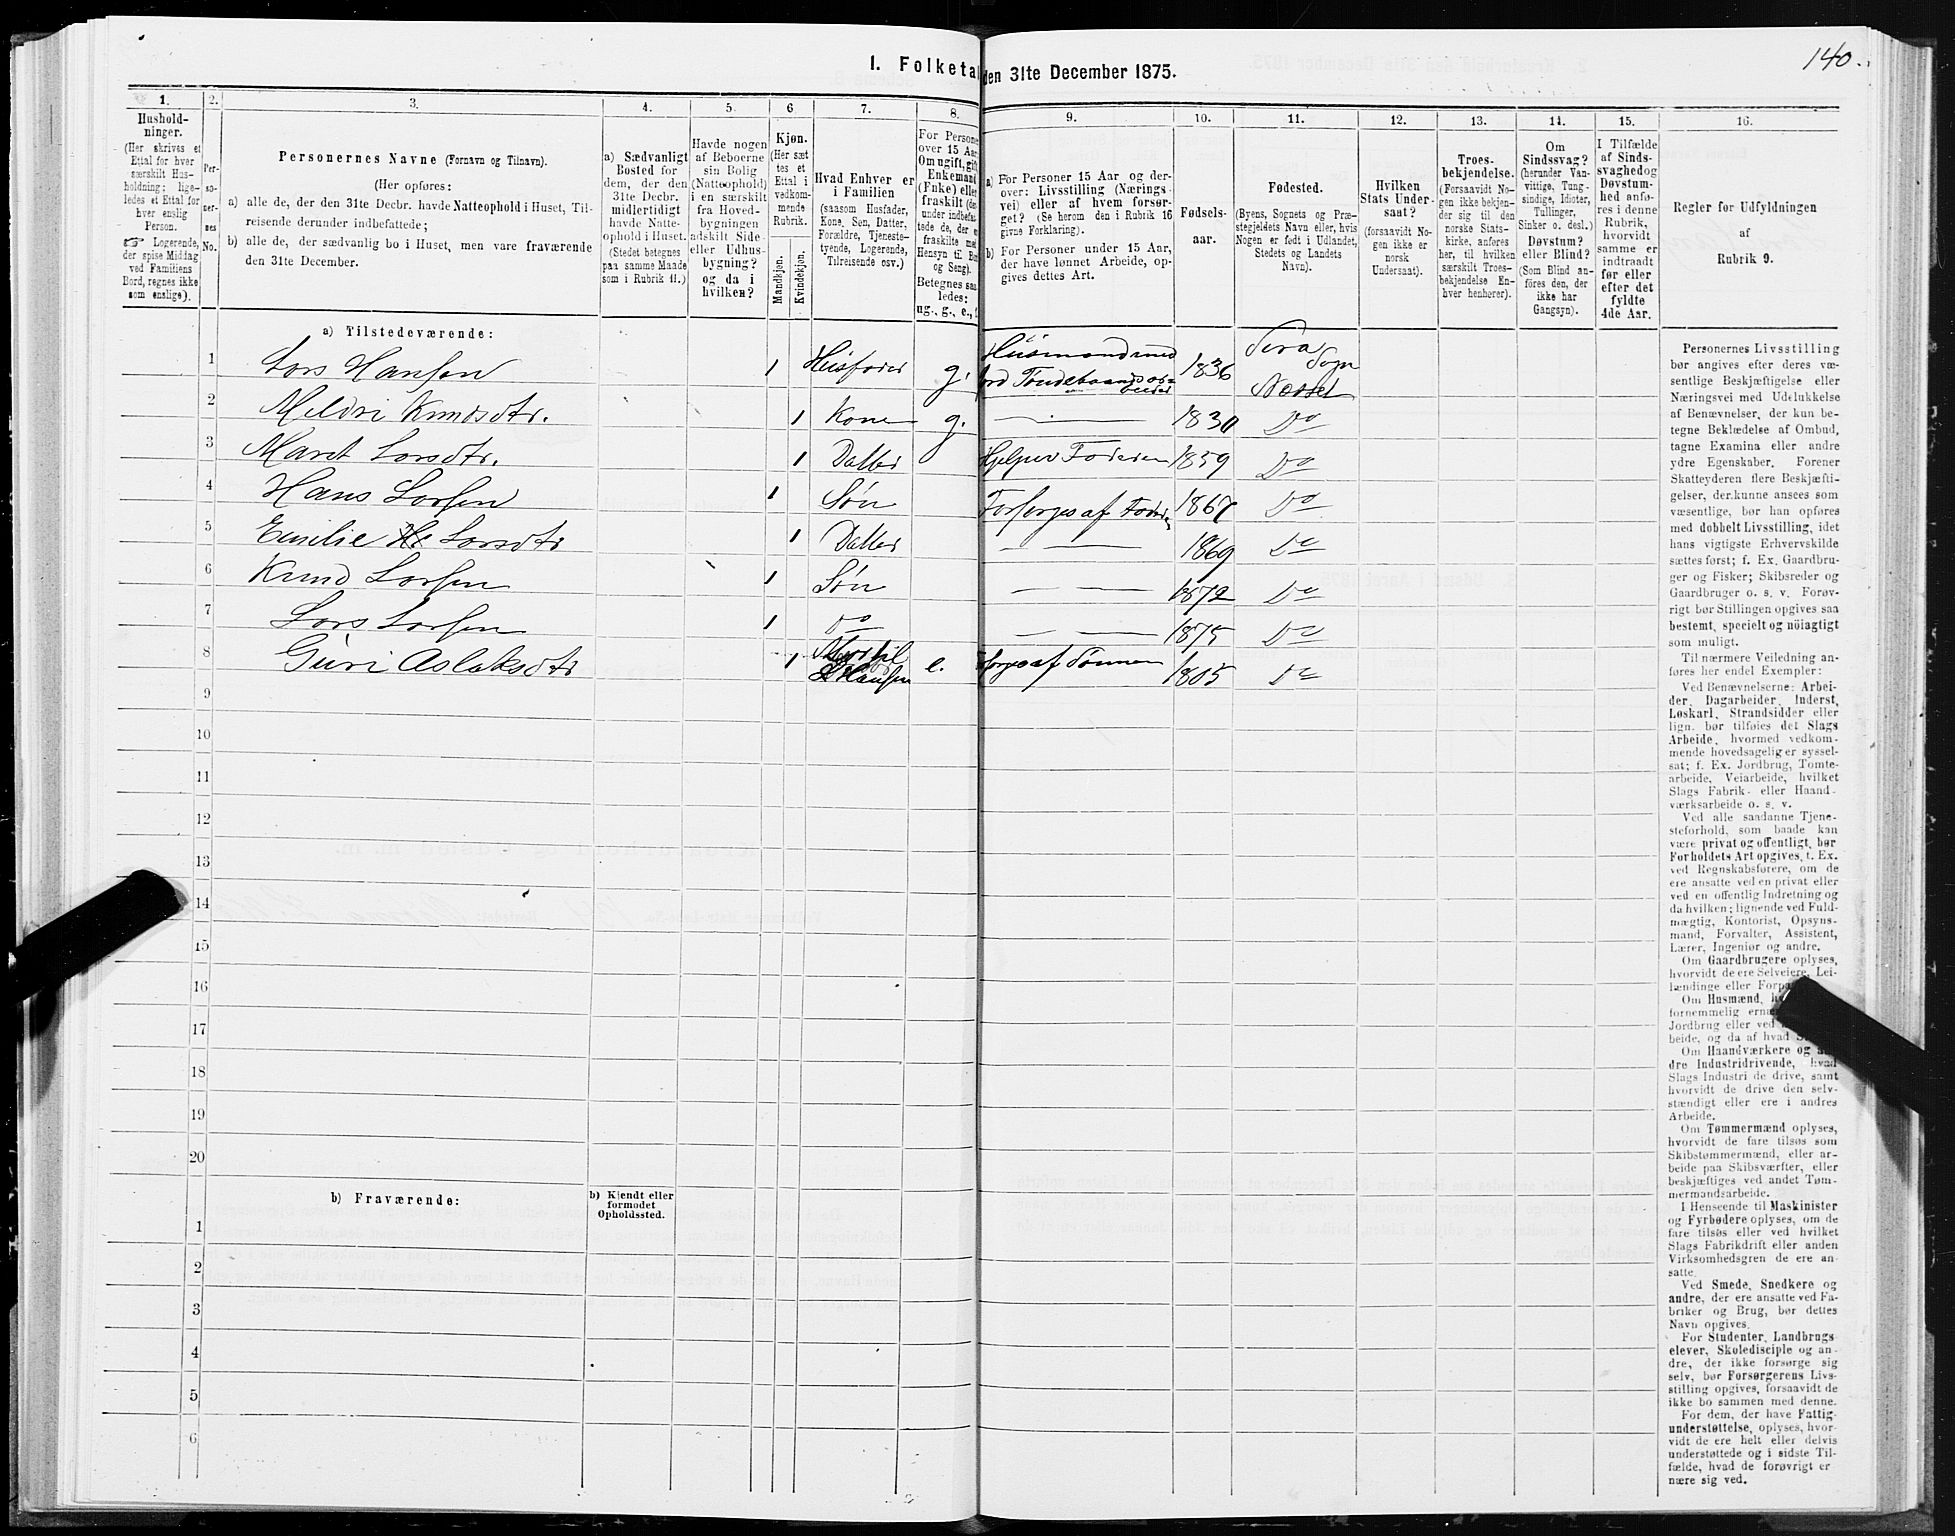 140.
I. Folketal den 31te December 1875.
1.
Hushold-
ninger.
(Her skrives et
Ettal for hver
særskilt Hus-
holdning; lige-
ledes et Ettal for
hver enslig
Person.
☞ Logerende,
der spise Middag
ved Familiens
Bord, regnes ikke
som enslige).
2.
Per-
so-
ner-
nes
No.
3.
Personernes Navne (Fornavn og Tilnavn).
(Her opføres:
a) alle de, der den 31te Decbr. havde Natteophold i Huset, Til-
reisende derunder indbefattede;
b) alle de, der sædvanlig bo i Huset, men vare fraværende
den 31te December.
4.
a) Sædvanligt
Bosted for
dem, der den
31te Decbr.
midlertidigt
havde Natte-
ophold i Huset.
(Stedet betegnes
paa samme Maade
som i Rubrik 11.)
5.
Havde nogen
af Beboerne
sin Bolig
(Natteophold)
i en særskilt
fra Hoved-
bygningen
adskilt Side-
eller Udhus-
bygning?
og da i
hvilken?
6
Kjøn.
(Her sæt
tes et
Ettal i
vedkom-
mende
Rubrik.
Mandkjøn.
Kvindekjøn.
7.
Hvad Enhver er
i Familien
(saasom Husfader,
Kone, Søn, Datter,
Forældre, Tjeneste-
tyende, Logerende,
Tilreisende osv.)
8.
For Persone
over 15 Aar
Om ugift, gift
Enkemand
(Enke) eller
fraskilt (der
under indbefat
tede de, der er
fraskilte med
Hensyn til Bo
og Seng).
Betegnes saa
ledes:
ug., g., e.,
9.
a) For Personer 15 Aar og der-
over: Livsstilling (Nærings-
vei) eller af hvem forsør-
get? (Se herom den i Rubrik 16
givne Forklaring).
b) For Personer under 15 Aar,
der have lønnet Arbeide, op-
gives dettes Art.
10.
Fødsels-
aar.
11.
Fødested.
(Byens, Sognets og Præ-
stegjeldets Navn eller, hvis
Nogen er født i Udlandet,
Stedets og Landets
Navn).
12.
Hvilken
Stats Under-
saat?
(forsaavidt No-
gen ikke er
norsk
Undersaat).
13.
Troes-
bekjendelse.
(Forsaavidt No-
gen ikke bekjen-
der sig til den
norske Stats-
kirke, anføres
her, til hvilken
særskilt Troes-
bekjendelse En-
hver henhører).
14.
Om
Sindssvag?
(herunder Van-
vittige, Tung-
sindige, Idioter,
Tullinger,
Sinker o. desl.)
Døvstum?
eller Blind?
(Som Blind an-
föres den, der
ikke har
Gangsyn).
15.
I Tilfælde
af Sinds-
svaghed og
Døvstum-
hed anfø-
res i denne
Rubrik,
hvorvidt
samme er
indtraadt
før eller
efter det
fyldte
4de Aar.
16.
Regler for Udfyldningen
af
Rubrik 9.
a) Tilstedeværende:
1 Lars Hansen 1 Husfader g. Husmand med
Jord Tøndebaandsar-
beider 1836 Sira Sogn
Nesset
2 Meldri Knudsdtr. 1 Kone g. — 1830 Do
3 Marit Larsdtr. 1 Datter Hjelper Faderen 1859 Do
4 Hans Larsen 1 Søn Forsørges af Fader 1867 Do
5 Emilie Larsdtr 1 Datter — — 1869 Do
6 Knud Larsen 1 Søn — — 1872 Do
7 Lars Larsen 1 do — — 1875 Do
8 Guri Aslaksdtr 1 Moder til
L Hansen e. forsørges af Sønnen 1805 Do
9
10
11
12
13
14
15
16
17
18
19
20
b) Fraværende:
b) Kjendt eller
formodet
Opholdssted.
1
2
3
4
5
6
Personernes Livsstilling
bør angives efter deres væ-
sentlige Beskjæftigelse eller
Næringsvei med Udelukkelse
af Benævnelser, der kun be-
tegne Beklædelse af Ombud,
tagne Examina eller andre
ydre Egenskaber. Forener
Skatteyderen flere Beskjæfti-
gelser, der kunne ansees som
væsentlige, bør han opføres
med dobbelt Livsstilling, idet
hans vigtigste Erhvervskilde
sættes først; f. Ex. Gaardbru-
ger og Fisker; Skibsreder og
Gaardbruger o. s. v. Forøv-
rigt bør Stillingen opgives saa
bestemt, specielt og nöiagtigt
som muligt.
Til nærmere Veiledning an-
føres her endel Exempler:
Ved Benævnelserne: Arbei-
der, Dagarbeider, Inderst,
Løskarl, Strandsidder eller
lign. bør tilføies det Slags
Arbeide, hvormed vedkom-
mende hovedsagelig er syssel-
sat; f. Ex. Jordbrug, Tomte-
arbeide, Veiarbeide, hvilket
Slags Fabrik- eller Haand-
værksarbeide o. s. v.
Ved alle saadanne Tjene-
steforhold, som baade kan
være privat og offentligt, bør
Forholdets Art opgives, t. Ex.
ved Regnskabsførere, om de
ere ansatte ved en privat eller
ved en offentlig Indretning og
da hvilken; lignende ved Fuld-
mægtig, Kontorist, Opsyns-
mand, Forvalter, Assistent,
Lærer, Ingeniør og andre.
Om Gaardbrugere oplyses,
hvorvidt de ere Selveiere, Lei-
lændinge eller Forpa
Om Husmænd,
fornemmelig ernæ
Jordbrug eller ved
beide, og da af hvad
Om Haandværkere og an-
dre Industridrivende, hvad
Slags Industri de drive, samt
hvorvidt de drive den selv-
stændigt eller ere i andres
Arbeide.
Om Tømmermænd oplyses,
hvorvidt de fare tilsøs som
Skibstømmermænd, eller ar-
beide paa Skibsværfter, eller
beskjæftiges ved andet Tøm-
mermandsarbeide.
I Henseende til Maskinister
og Fyrbødere oplyses, om de
fare tilsøs eller ved hvilket
Slags Fabrikdrift eller anden
Virksomhedsgren de ere an-
satte.
Ved Smede, Snedkere og
andre, der ere ansatte ved Fa-
briker og Brug, bør dettes
Navn opgives.
For Studenter, Landbrugs
elever, Skoledisciple og an-
dre, der ikke forsørge sig
selv, bør Forsørgerens Livs-
stilling opgives, forsaavidt de
ikke bo sammen med denne.
For dem, der have Fattig-
understøttelse, oplyses, hvor-
vidt de ere helt eller delvis
understøttede og i sidste Til-
fælde, hvad de forøvrigt er
nære sig ved.